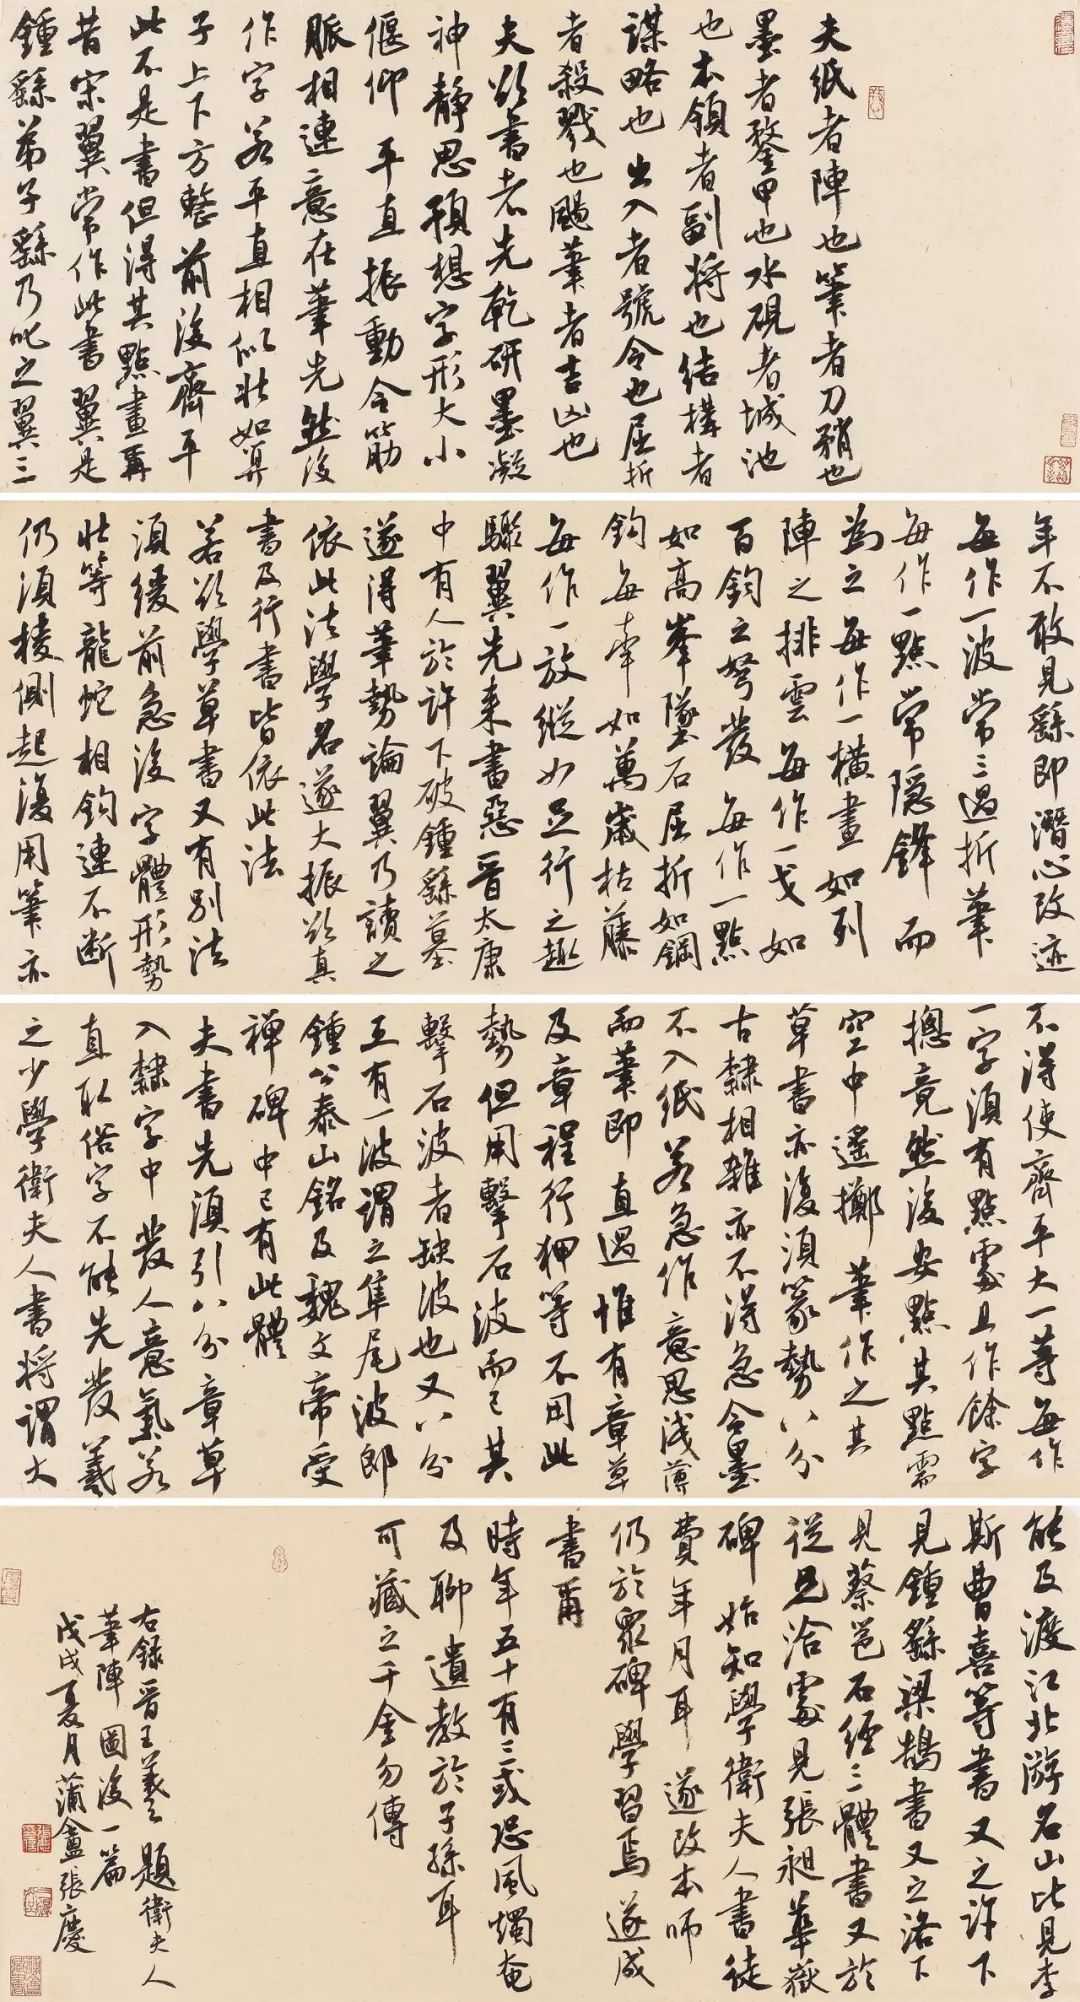 夫紙者陣也筆者刀矟也
墨者鍪甲也水硯者城池
也本領者副將也結構者
謀略也出入者號令也屈折
者殺戮也颺筆者吉凶也
夫欲書者先乾研墨凝
神靜思預想字形大小
偃仰平直振動令筋
脈相連意在筆先然後
作字若平直相似狀如算
子上下方整前後齊平
此不是書但得其點畫耳
昔宋翼常作此書翼是
鍾繇弟子繇乃叱之翼三
年不敢見繇即潛心改迹
每作一波常三過折筆
每作一點常隱鋒而
為之每作一橫畫如列
陣之排雲每作一戈如
百鈞之弩發每作一點
如高峯墜石屈折如鋼
鉤每牽如萬歲枯藤
每作一放縱如足行之趣
驟翼先來書惡晉太康
中有人於許下破鍾繇墓
遂得筆勢論翼乃讀之
依此法學名遂大振欲真
書及行書皆依此法
若欲學草書又有別法
須緩前急後字體形勢
狀等龍蛇相鉤連不斷
仍須棱側起復用筆亦
不得使齊平大一等每作
一字須有點處且作餘字
摠竟然後安點其點需
空中遙擲筆作之其
草書亦復須篆勢八分
古隸相雜亦不得急令墨
不入紙若急作意思淺薄
而筆即直過惟有章草
及章程行狎等不用此
勢但用擊石波而已其
擊石波者缺波也又八分
五有一波謂之隼尾波即
鍾公泰山銘及魏文帝受
禪碑中已有此體
夫書先須引八分章草
入隸字中發人意氣若
直取俗字不能先發羲
之少學衛夫人書將謂大
能及渡江北游名山比見李
斯曹喜等書又之許下
見鍾繇梁鵠書又之洛下
見蔡邕石經三體書又於
從兄洽處見張昶華嶽
碑始知學衛夫人書徒
費年月耳遂改本師
仍於眾碑學習焉遂成
書爾
時年五十有三或恐風燭奄
及聊遺教於子孫耳
可藏之千金勿傳
右錄晉王羲之題衛夫人
筆陣圖後一篇
戊戌夏月蒲盦張慶